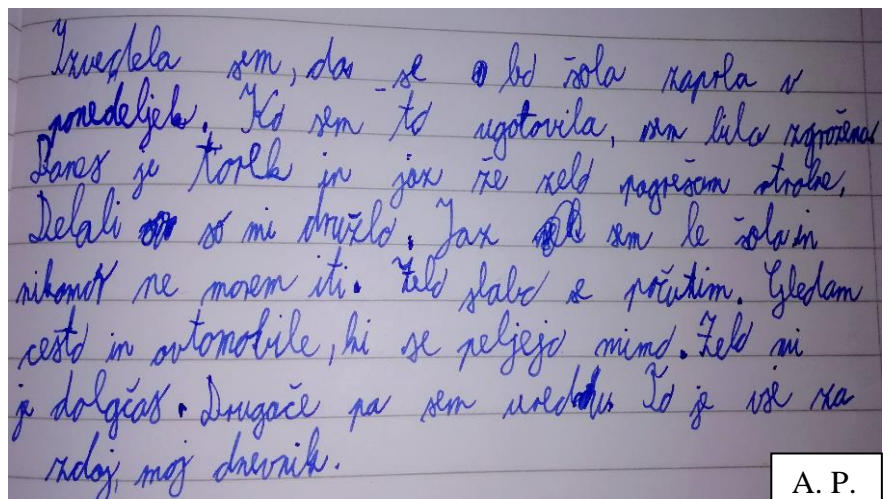 Izvedela sem, da se bo šola zaprla v
ponedeljek. Ko sem to ugotovila, sem bila zgrožena
Danes je torek in jaz že zelo pogrešam otroke.
Delali so mi družbo. Jaz sem le šola in
nikamor ne morem iti. Zelo slabo se počutim. Gledam
cesto in avtomobile, ki se peljejo mimo. Zelo mi
je dolgčas. Drugače pa sem uredu. To je vse za
zdaj, moj dnevnik.
A. P.